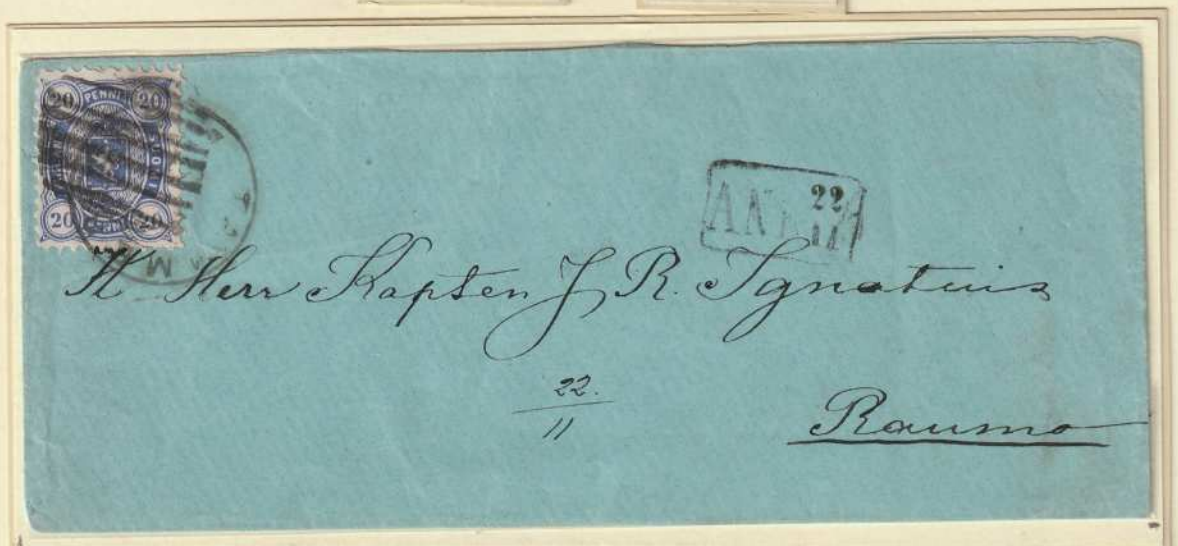 20 PENNI 20
SUOMI
20 PENNI 20
22
ANK
11
Herr Kapten J. R. Ignatius
22.
11
Raumo